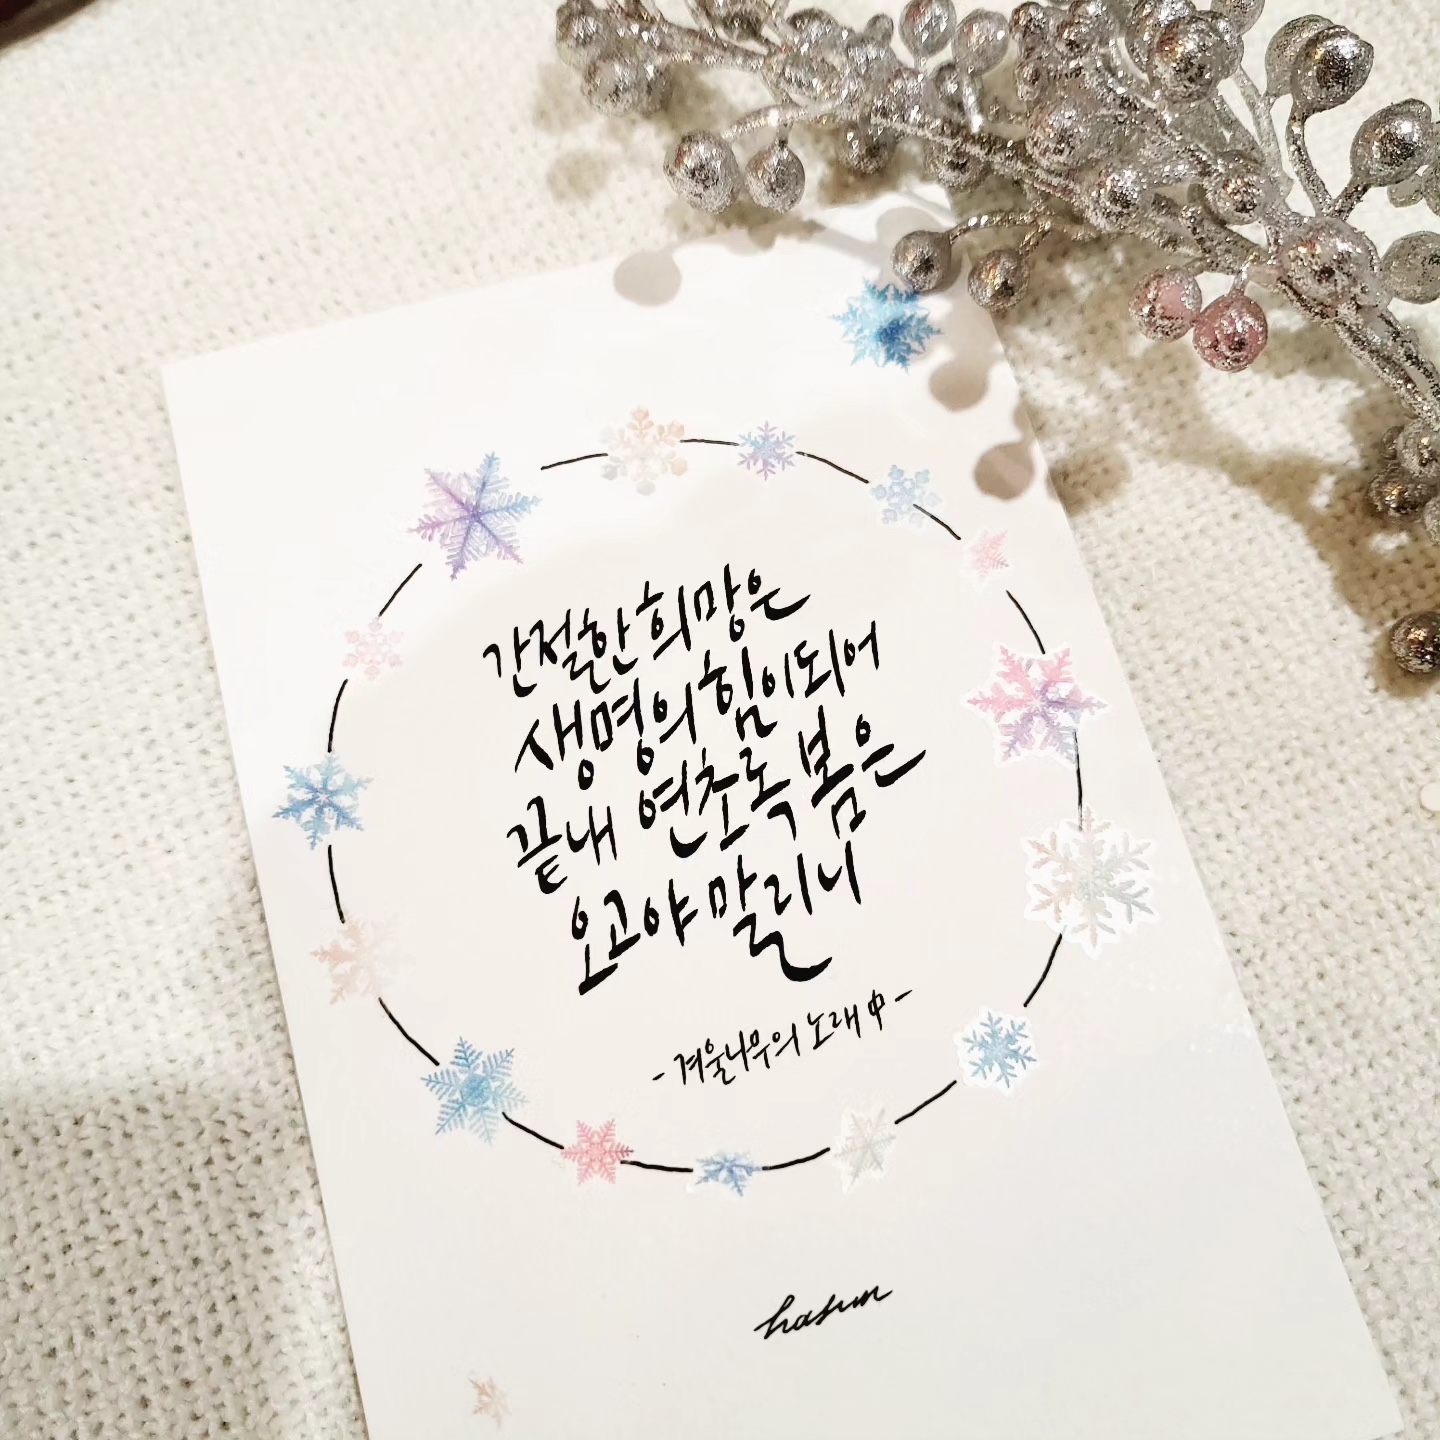 간절한 희망은
생명의 힘이되어
끝내 연초록 봄은
오고야 말리니
- 겨울나무의 노래 中 -
hasun